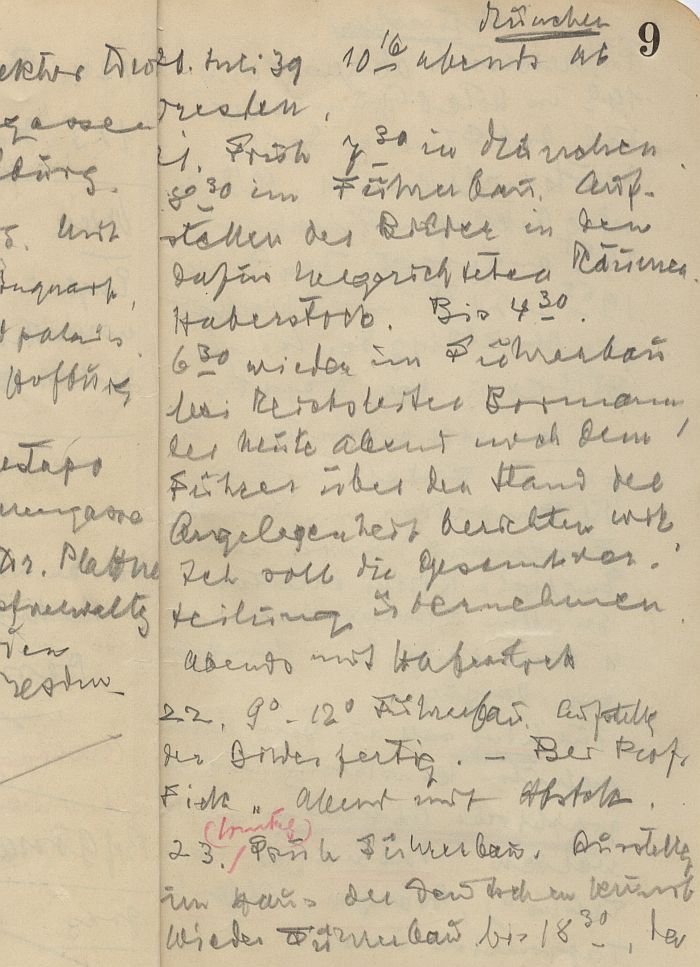 München
9
20. Juli 39 10 16 abends ab
Dresden.
21. Früh 7 30 in München.
8 30 im Führerbau. Auf-
stellen der Bilder in den
dafür hergerichteten Räumen.
Haberstock. Bis 4 30.
6 30 wieder im Führerbau
bei Reichsleiter Bormann,
der heute Abend noch dem
Führer über den Stand der
Angelegenheit berichten will.
Ich soll die Gesamtver-
teilung übernehmen.
Abends mit Haberstock
22. 9° - 12° Führerbau. Aufstellg
der Bilder fertig. — Bei Prof.
Fick „ Abend mit Hbstck.
(Sonntag)
23. / Früh Führerbau. Ausstellg
im Haus der Deutschen Kunst
Wieder Führerbau bis 18 30, der
gassee
burg.
Mit
palais.
Hofburg
Dr. Plattne